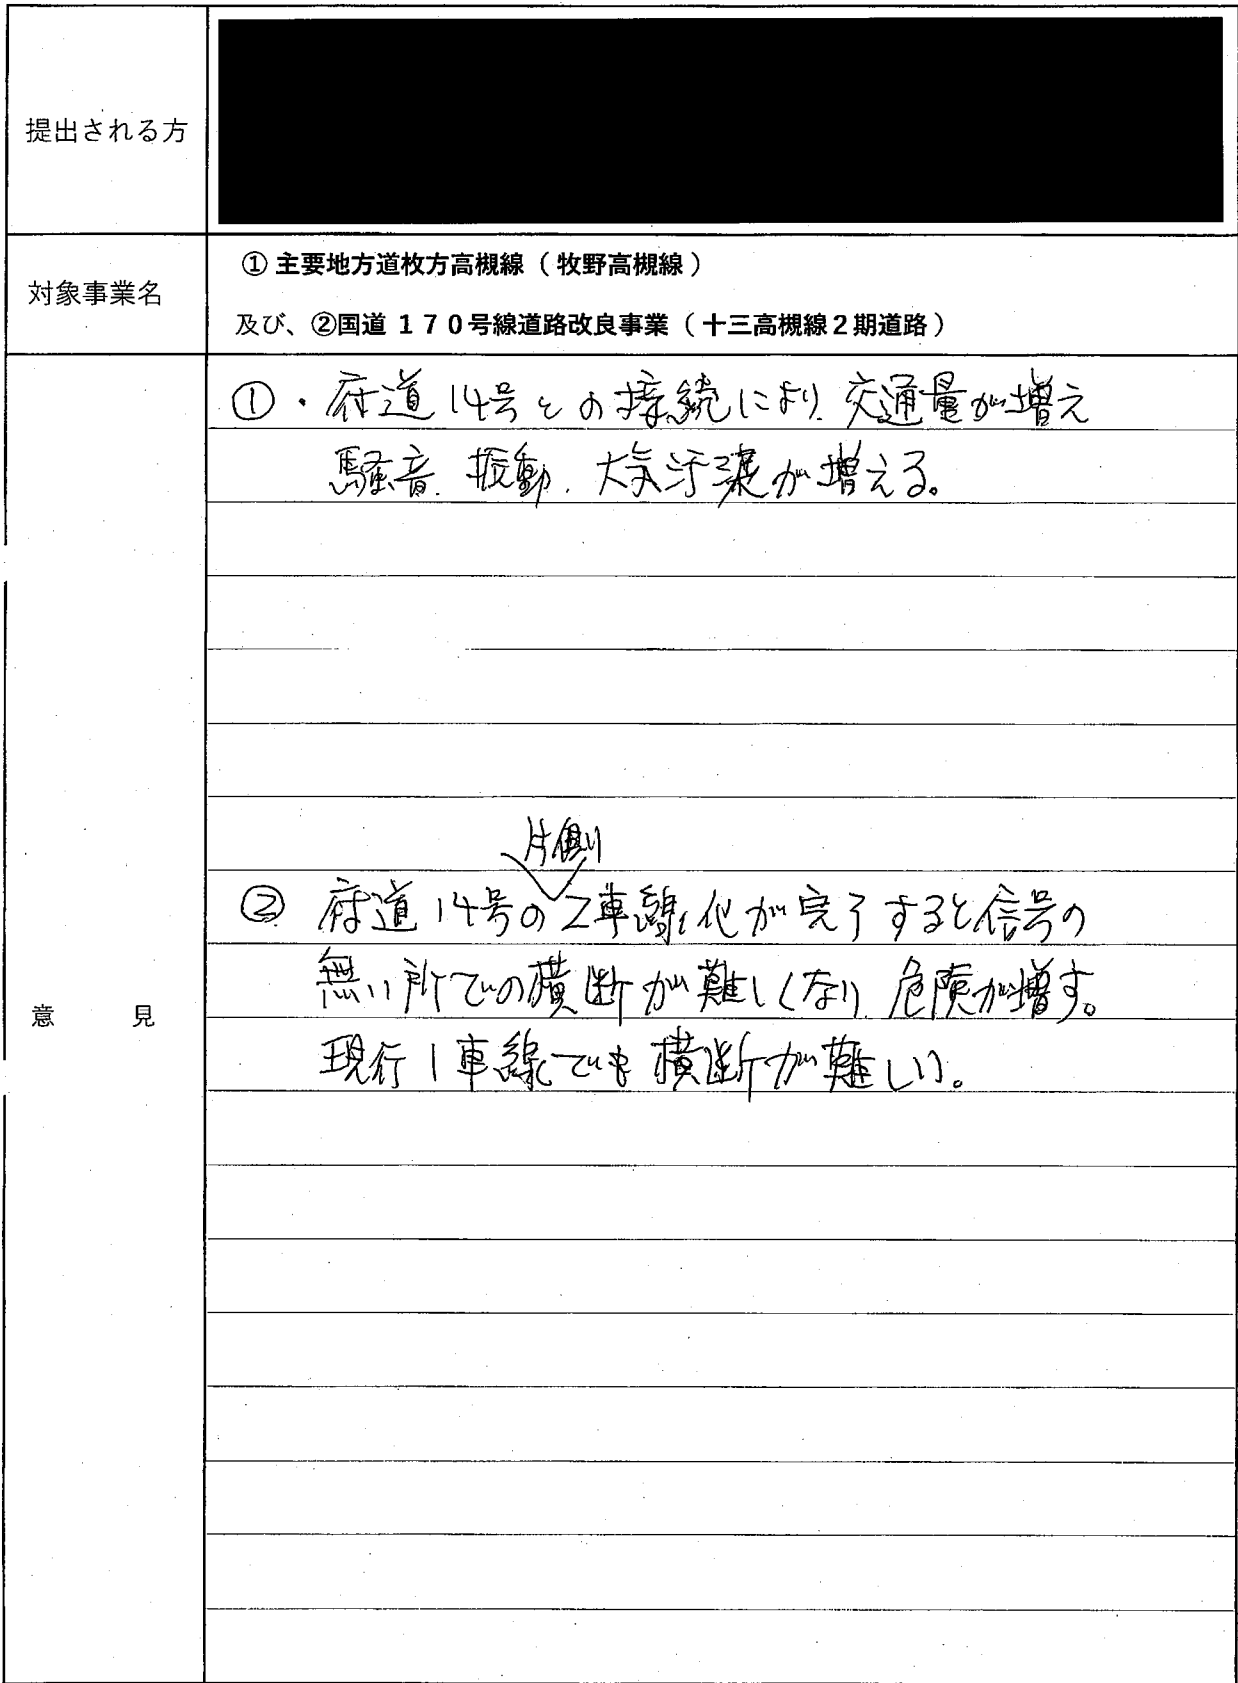 提出される方
対象事業名
① 主要地方道枚方高槻線（牧野高槻線）
及び、②国道１７０号線道路改良事業（十三高槻線２期道路）
意見
①・府道14号との接続により、交通量が増え
騒音、振動、大気汚染が増える。
片側
② 府道14号の2車線化が完了すると信号の
無い所での横断が難しくなり、危険が増す。
現行1車線でも横断が難しい。